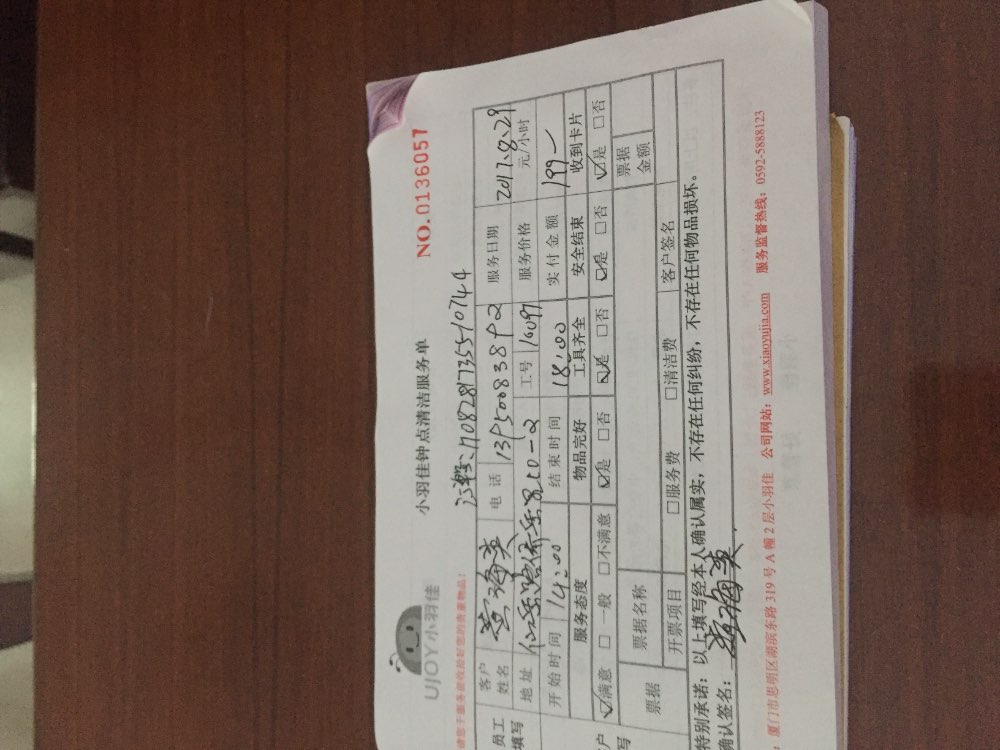 UJOY小羽佳
小羽佳钟点清洁服务单
NO.0136057
170828173551074
客户姓名 电话 服务日期 2017.8.29
地址 工号 16097 服务价格 元/小时
开始时间 14:00 结束时间 18:00 实付金额 199-
员工填写
服务态度 物品完好 工具齐全 安全结束 收到卡片
☑满意 □一般 □不满意 ☑是 □否 ☑是 □否 ☑是 □否 ☑是 □否
票据 票据名称 票据金额
开票项目 □服务费 □清洁费 客户签名
特别承诺：以上填写经本人确认属实，不存在任何纠纷，不存在任何物品损坏。
确认签名：
厦门市思明区湖滨东路319号A幢2层小羽佳 公司网站：www.xiaoyujia.com 服务监督热线：0592-5888123